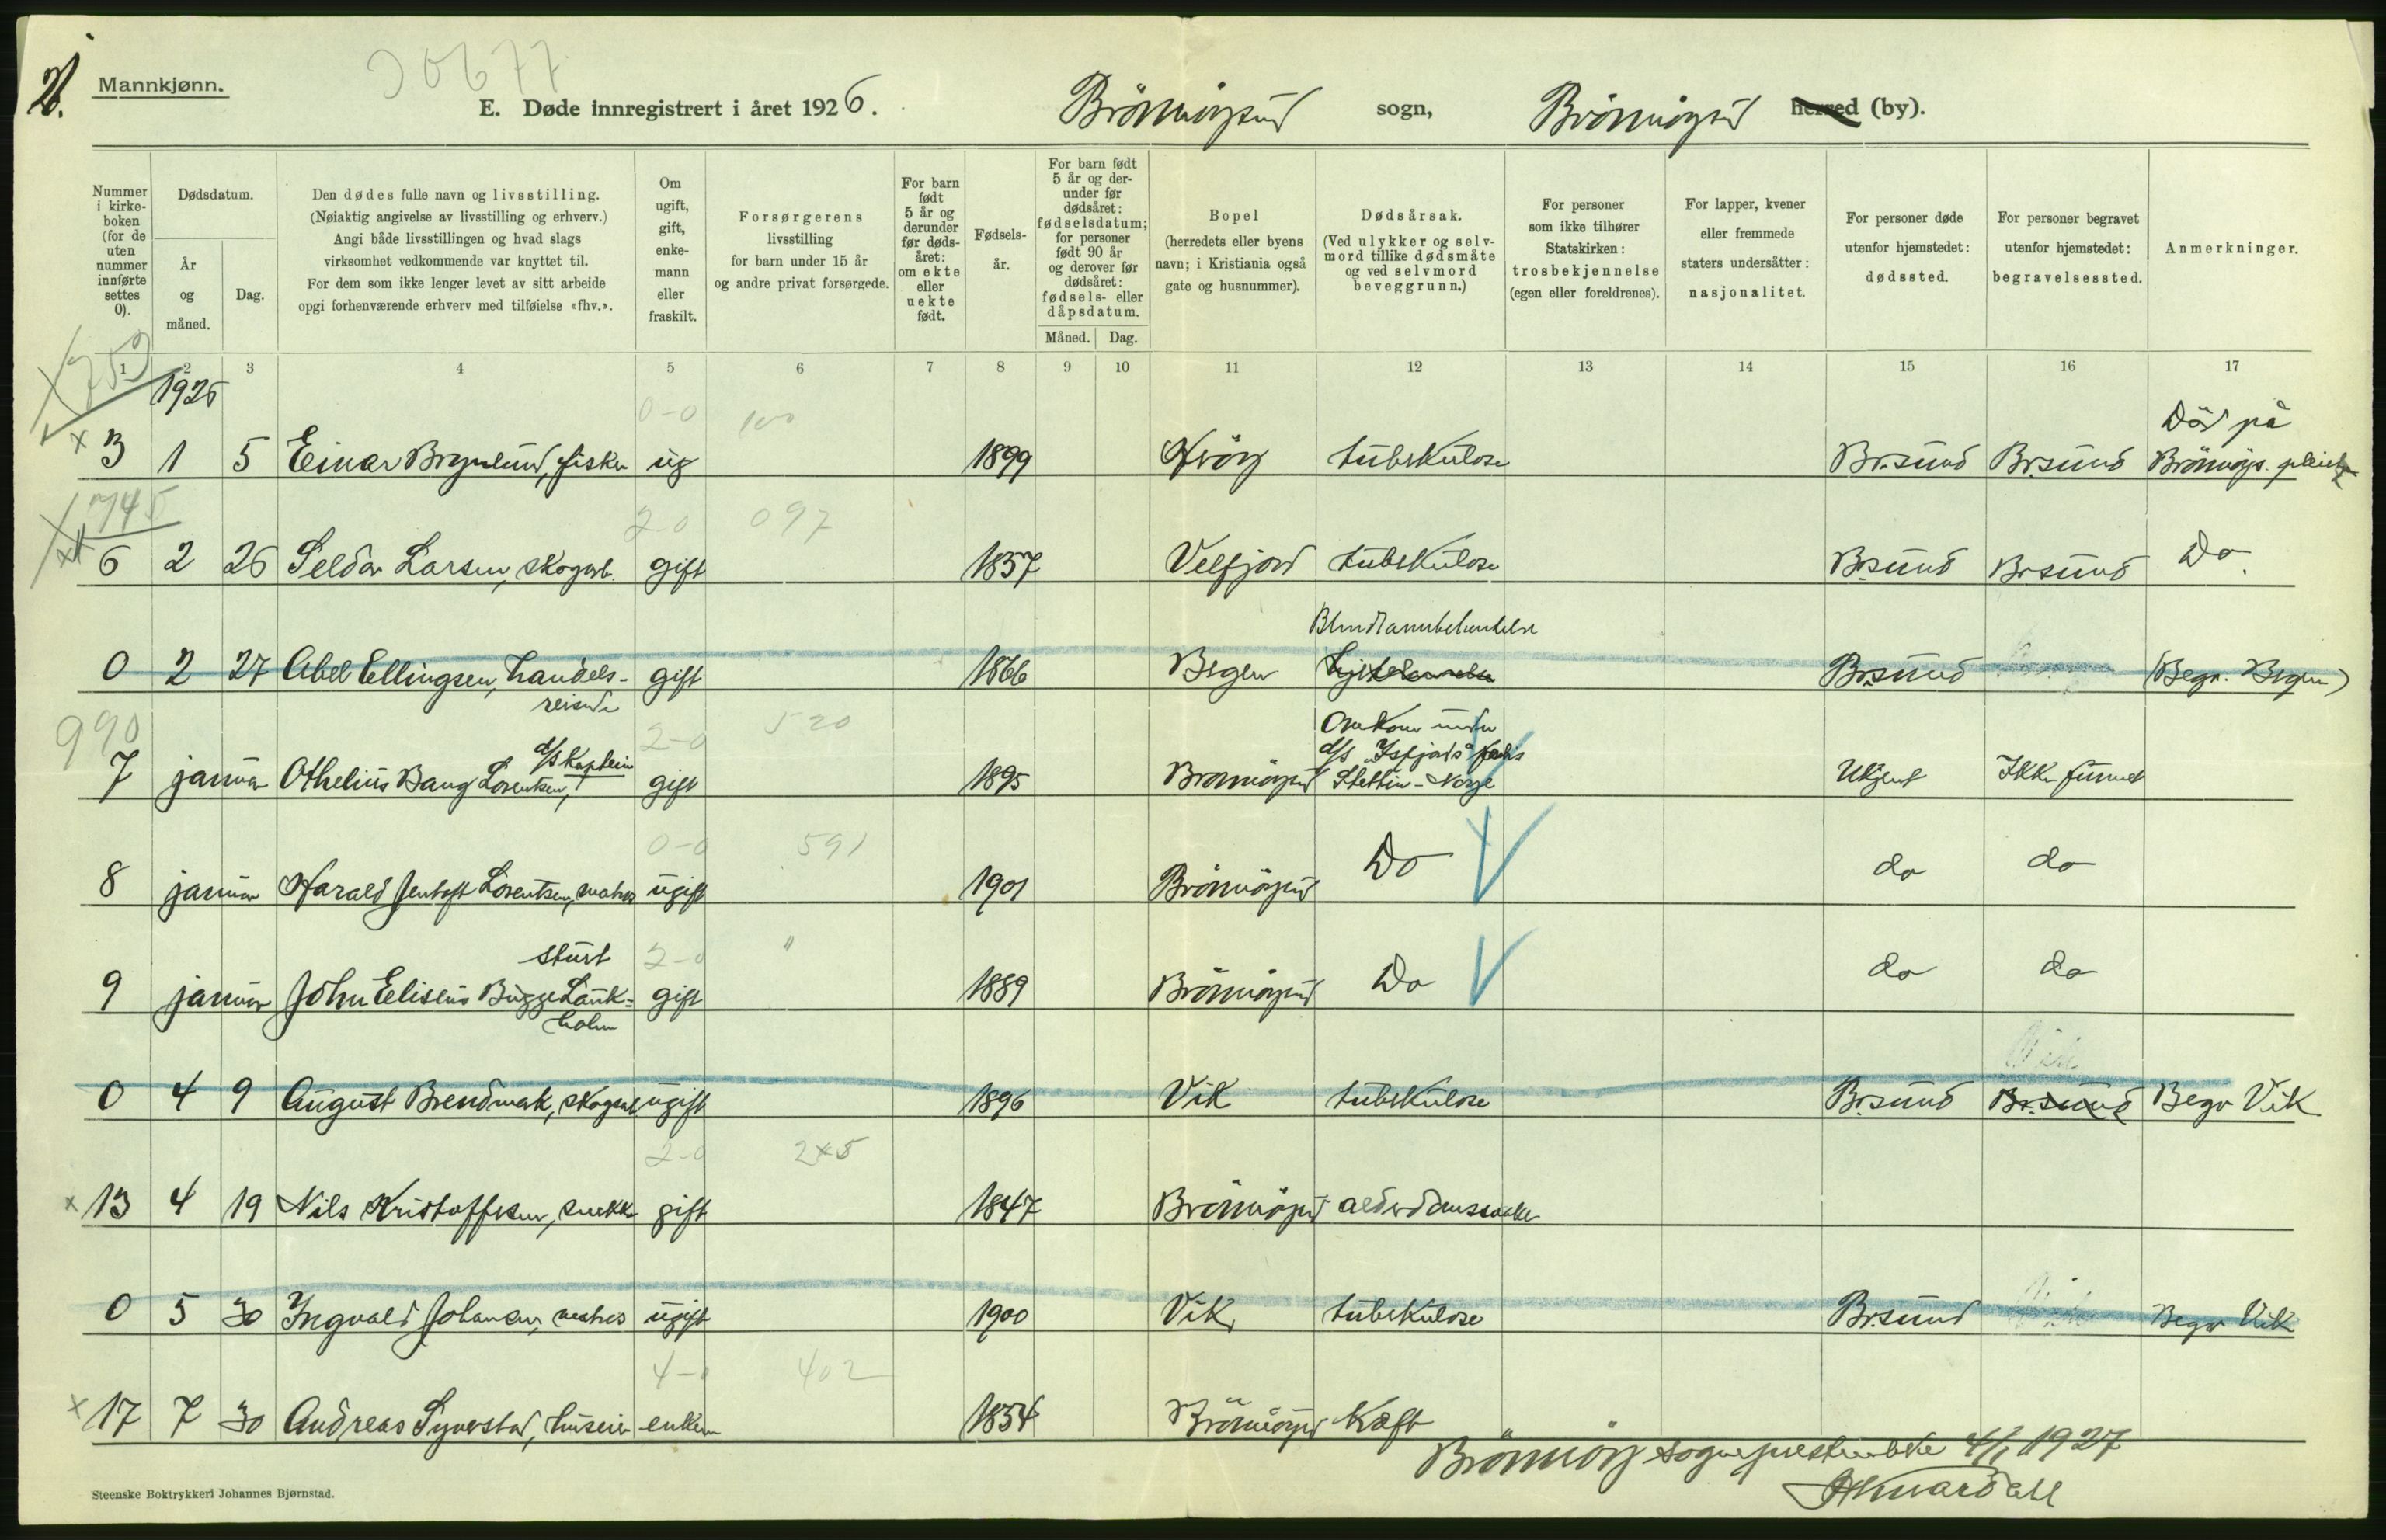 2b.
Mannkjønn.
30677
E. Døde innregistrert i året 1926.
Brönnöysund sogn, Brönnöysund herred (by).
Nummer i kirke-boken (for de uten nummer innførte settes 0).
Dødsdatum.
År og måned.
Dag.
Den dødes fulle navn og livsstilling.
(Nøiaktig angivelse av livsstilling og erhverv.)
Angi både livsstillingen og hvad slags
virksomhet vedkommende var knyttet til.
For dem som ikke lenger levet av sitt arbeide
opgi forhenværende erhverv med tilføielse «fhv.».
Om ugift, gift, enke-mann eller fraskilt.
Forsørgerens
livsstilling
for barn under 15 år
og andre privat forsørgede.
For barn født 5 år og derunder før døds-året: om ekte eller uekte født.
Fødsels-år.
For barn født 5 år og der-under før dødsåret: fødselsdatum; for personer født 90 år og derover før dødsåret: fødsels- eller dåpsdatum.
Måned. Dag.
Bopel
(herredets eller byens
navn; i Kristiania også
gate og husnummer).
Dødsårsak.
(Ved ulykker og selv-
mord tillike dødsmåte
og ved selvmord
beveggrunn.)
For personer
som ikke tilhører
Statskirken:
trosbekjennelse
(egen eller foreldrenes).
For lapper, kvener
eller fremmede
staters undersåtter:
nasjonalitet.
For personer døde
utenfor hjemstedet:
dødssted.
For personer begravet
utenfor hjemstedet:
begravelsessted.
Anmerkninger.
1 2 3 4 5 6 7 8 9 10 11 12 13 14 15 16 17
1926
0-0
Död på
3 1 5 Einar Brynlund, fisker ug 1899 tuberkulose Br.sund Br.sund Brönnöys. pleiehj
745
2-0 097
6 2 26 Larsen, skogarb. gift 1857 Velfjord tuberkulose Br.sund Br.sund Do.
0 2 27 Abel Ellingsen, handels- gift 1866 Bergen Br.sund (Begr. Bergen)
reisende
990 2-0 520
Omkom under
d/s kaptein d/s "Isfjord"s forlis
7 januar Othelius Bang Lorentsen, gift 1895 Brönnöysund Stettin - Norge Ukjent Ikke funnet
0-0 591
8 januar Harald Jentoft Lorentsen, matros ugift 1901 Brönnöysund Do do do
2-0 "
sturt
9 januar John Eliseus Bugge Lank= gift 1889 Brönnöysund Do do do
holm
0 4 9 August Brendmak, skogsarb ugift 1896 Vik tuberkulose Br.sund Br.sund Begr Vik
2-0 245
13 4 19 Nils Kristoffersen, snekker gift 1847 Brönnöysund alderdomssvakhet
0 5 30 Ingvald Johansen, matros ugift 1900 Vik tuberkulose Br.sund Begr Vik
4-0 402
17 7 30 Andreas Syverstad, huseier enkem 1854 Brönnöysund Kræft
Brönnöy sogneprestembede 4/1 1927
Steenske Boktrykkeri Johannes Bjørnstad.